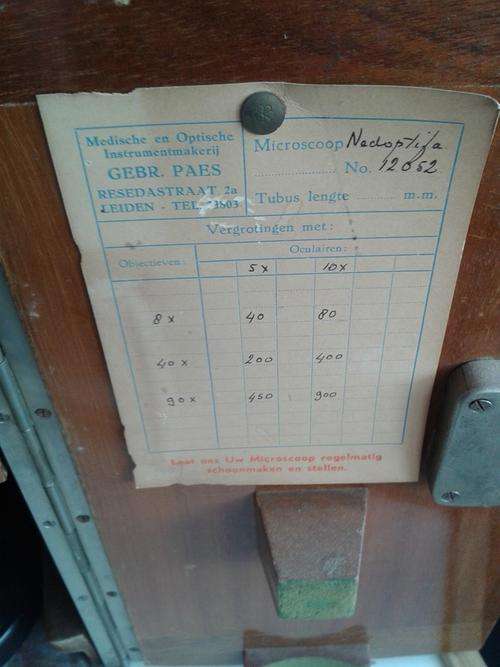 Medische en Optische
Instrumentmakerij
GEBR. PAES
RESEDASTRAAT 2a
LEIDEN - TEL. 33803
Microscoop Nedoptifa
No. 12052
Tubus lengte m.m.
Vergrotingen met:
Objectieven:
Oculairen:
5x 10x
8x 40 80
40x 200 400
90x 450 900
Laat ons Uw Microscoop regelmatig
schoonmaken en stellen.